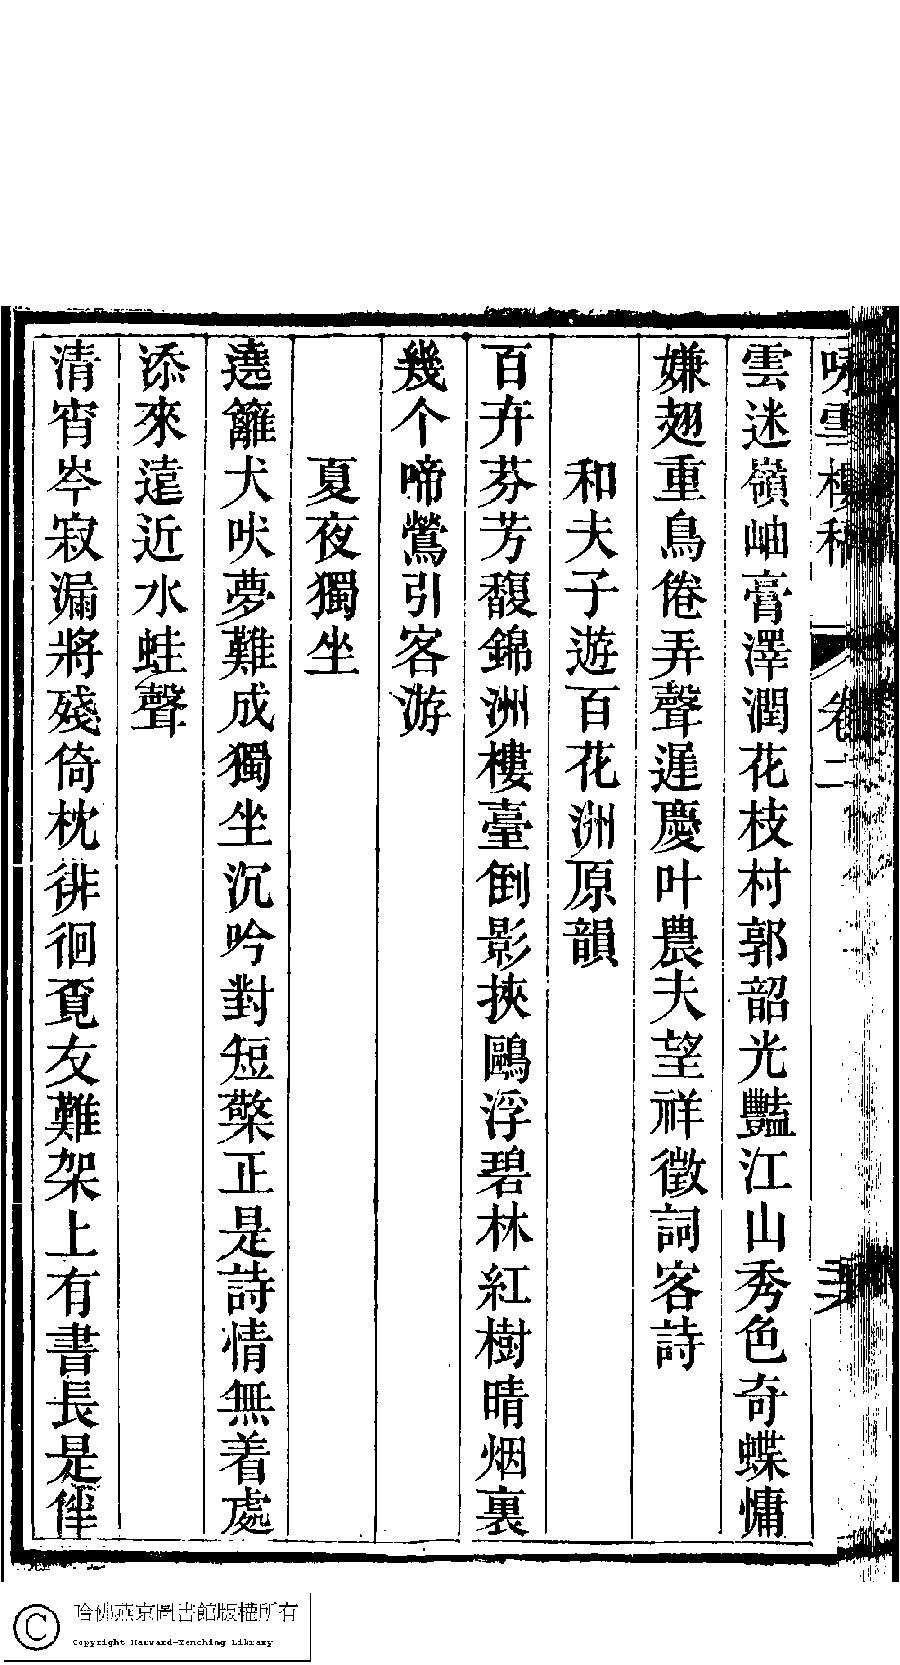 雪樓稿 卷二
雲迷嶺岫膏澤潤花枝村郭韶光豔江山秀色奇蝶慵
嫌翅重鳥倦弄聲遲慶叶農夫望祥徵詞客詩
和夫子遊百花洲原韻
百卉芬芳馥錦洲樓臺倒影挾鷗浮碧林紅樹晴烟裏
幾个啼鶯引客游
夏夜獨坐
遶籬犬吠夢難成獨坐沉吟對短檠正是詩情無着處
添來遠近水蛙聲
清宵岑寂漏將殘倚枕徘徊覓友難架上有書長是伴
哈佛燕京圖書館版權所有
Copyright Harvard-Yenching Library